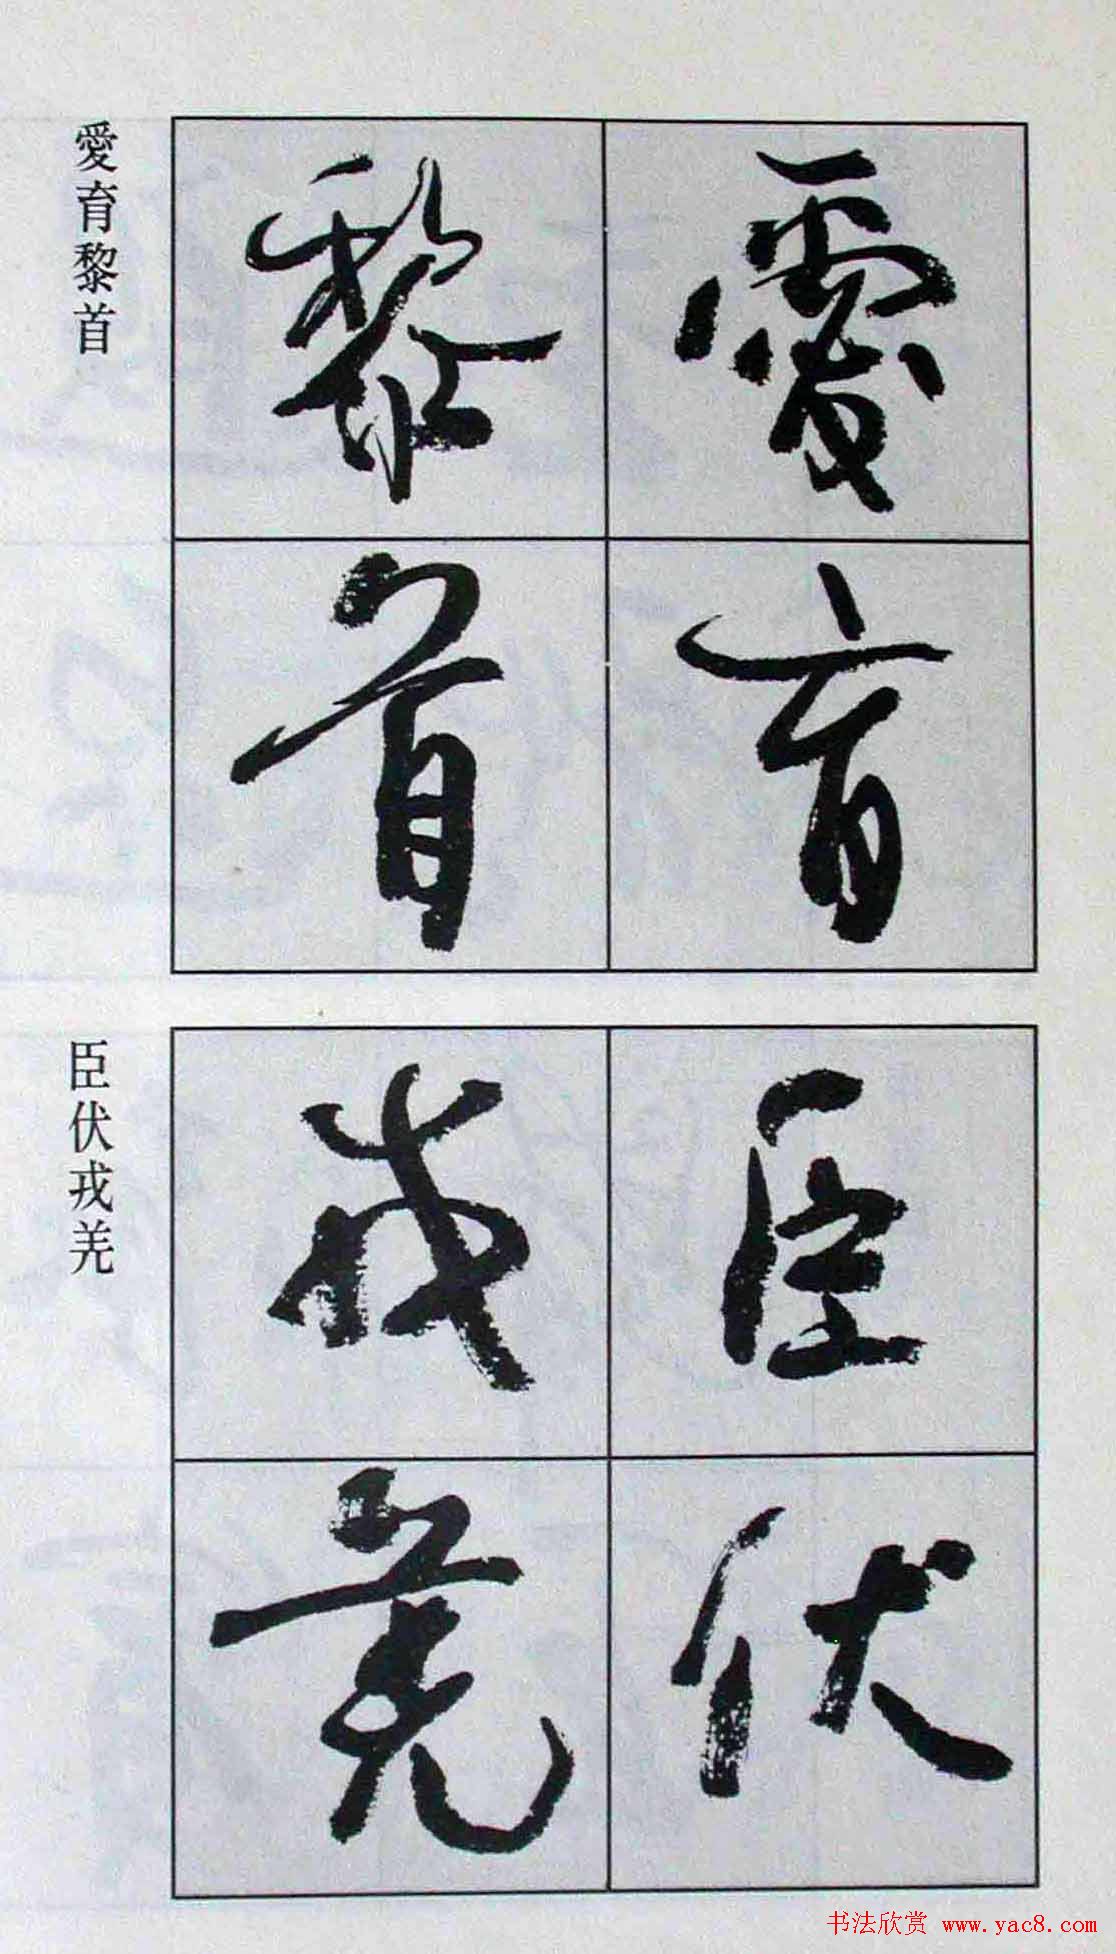 愛育
黎首
愛育黎首
臣伏
戎羌
臣伏戎羌
书法欣赏 www.yac8.com